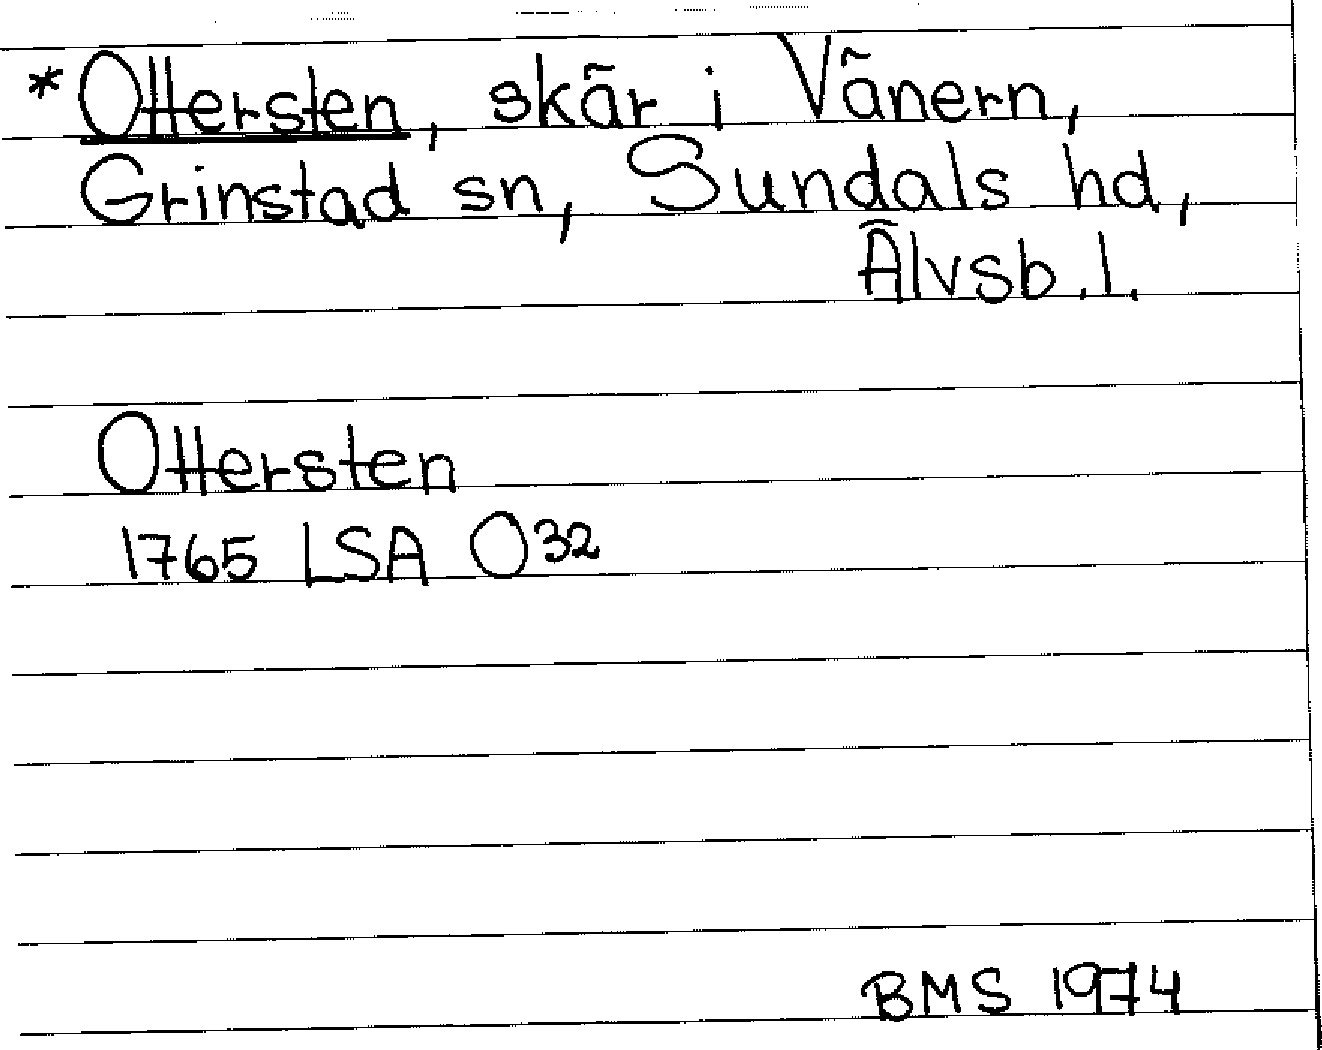 *Ottersten, skär i Vänern,
Grinstad sn, Sundals hd,
Älvsb. l.
Ottersten
1765 LSA O 32
BMS 1974